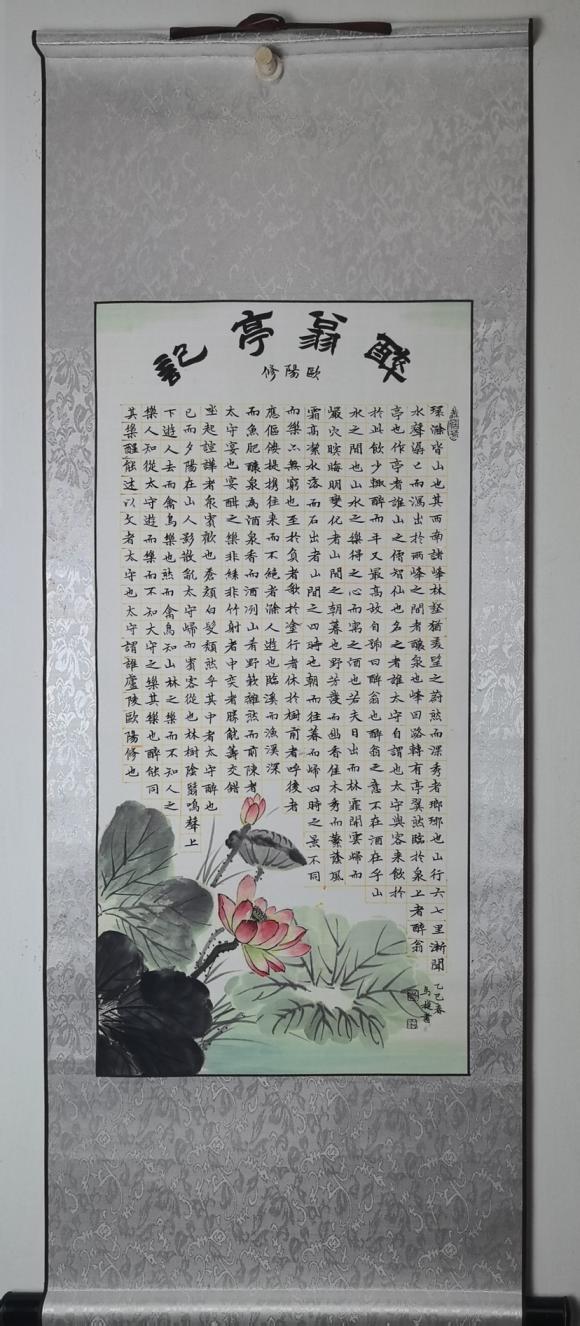 醉翁亭記
歐陽修
環滁皆山也其西南諸峰林壑猶美望之蔚然而深秀者瑯琊也山行六七里漸聞
水聲潺〻而瀉出於兩峰之間者釀泉也峰回路轉有亭翼然臨於泉上者醉翁
亭也作亭者誰山之僧智仙也名之者誰太守自謂也太守與客来飲於
於此飲少輒醉而年又最高故自號曰醉翁也醉翁之意不在酒在乎山
水之間也山水之樂得之心而寓之酒也若夫日出而林霏開雲歸而
巖穴暝晦明變化者山間之朝暮也野芳發而幽香佳木秀而繁蔭風
霜高潔水落而石出者山間之四時也朝而往暮而歸四時之景不同
而樂亦無窮也至於負者歌於塗行者休於樹前者呼後者
應傴僂提携往来而不絕者滁人遊也臨溪而漁溪深
而魚肥釀泉為酒泉香而酒洌山肴野蔌雜然而前陳者
太守宴也宴酣之樂非絲非竹射者中奕者勝觥籌交錯
坐起諠譁者衆賓歡也蒼顏白髮頹然乎其中者太守醉也
已而夕陽在山人影散亂太守歸而賓客從也林樹陰翳鳴聲上
下遊人去而禽鳥樂也然而禽鳥知山林之樂而不知人之
樂人知從太守遊而樂而不知太守之樂其樂也醉能同
其樂醒能述以文者太守也太守謂誰廬陵歐陽修也
乙巳春